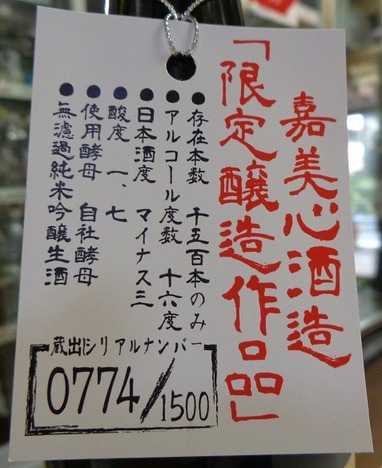 嘉美心酒造
「限定醸造作品」
●存在本数 千五百本のみ
●アルコール度数 十六度
●日本酒度 マイナス三
●酸度 一、七
●使用酵母 自社酵母
●無濾過純米吟醸生酒
蔵出しシリアルナンバー
0774/1500